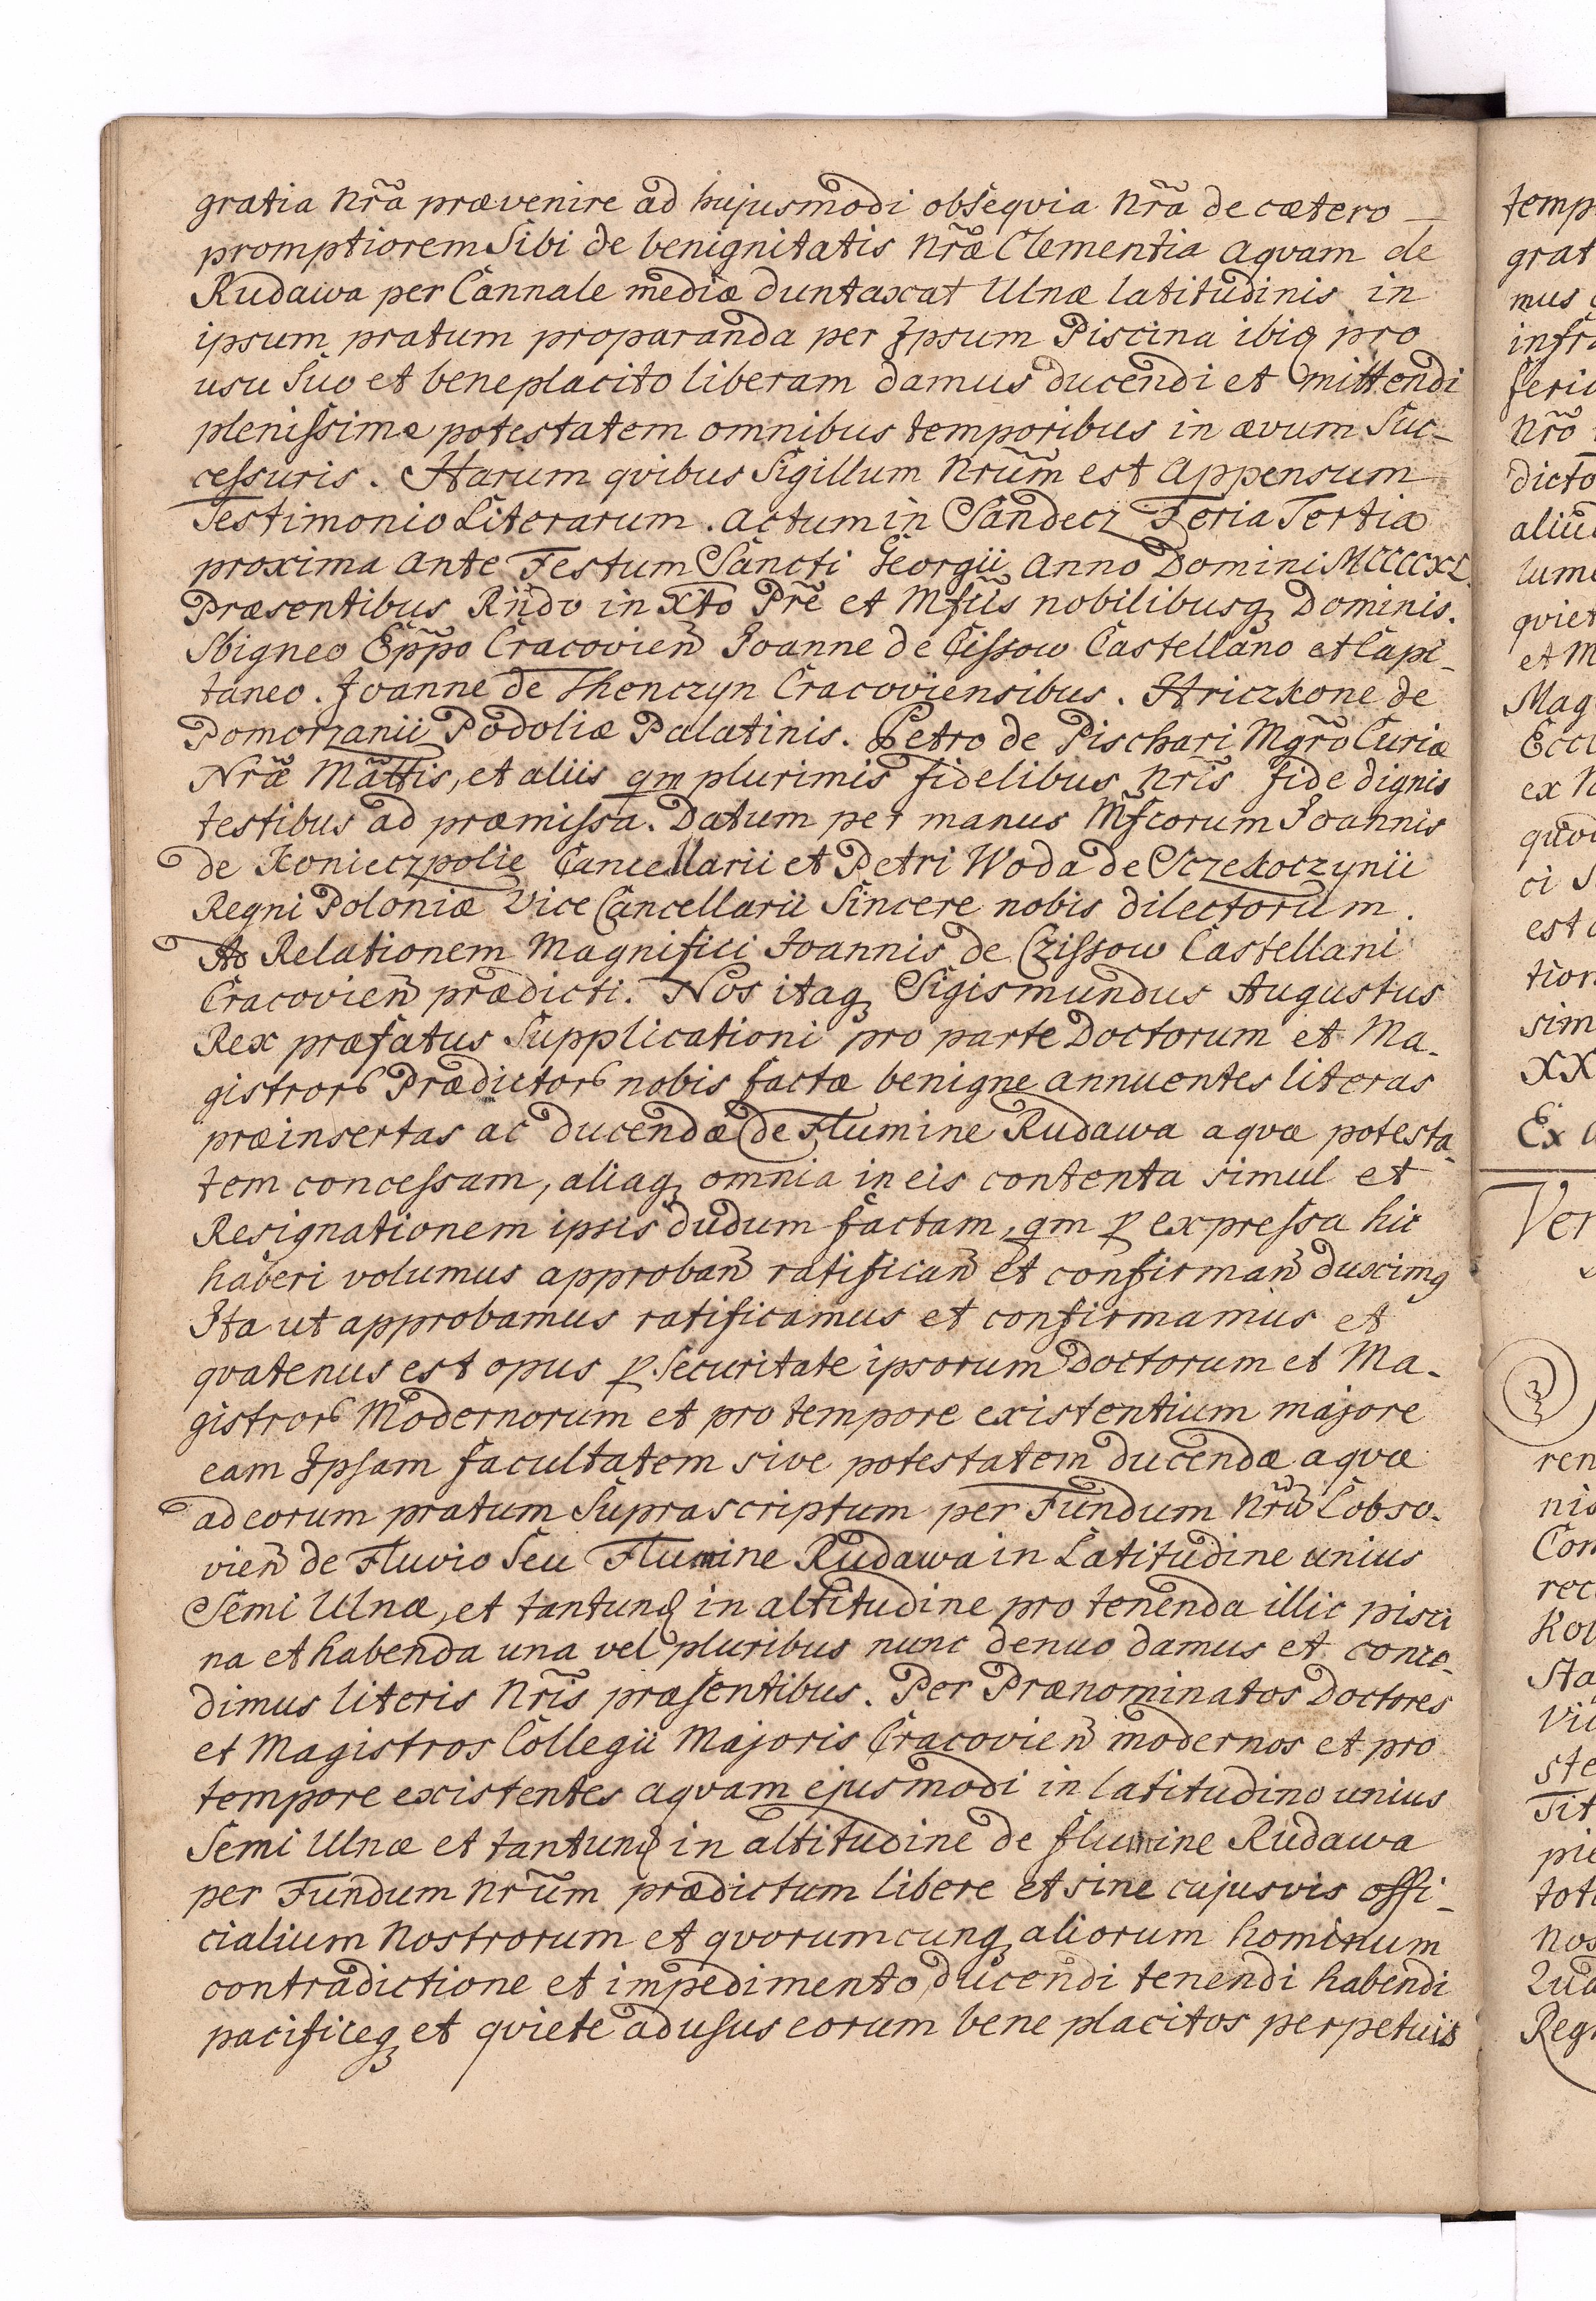 gratia nr̃a prævenire ad hujusmodi obseqvia nr̃a de cætero —
promptiorem Sibi de benignitatis nr̃æ Clementia aqvam de
Rudawa per Cannale mediæ duntaxat Ulnæ latitudinis in
ipsum pratum proparanda per Ipsum Piscina ibiq pro
usu Suo et beneplacito liberam damus ducendi et mittendi
plenissime potestatem omnibus temporibus in ævum Suc-
cessuris. Harum qvibus Sigillum nrũm est appensum
Testimonio Literarum. actum in Sandecz Feria Tertia
proxima ante Festum Sancti Georgii Anno Domini MCCCCXL
Præsentibus Rñdo in Xto Prẽ et Mfcis nobilibusq Dominis.
Sbigneo Eppo Cracovien̄ Joanne de Cissow Castellano et Capi-
taneo. Joanne de Thenczyn Cracoviensibus. Hriczkone de
Pomorzanii Podoliæ Palatinis. Petro de Pischari Mgrõ Curiæ
Nr̃æ Mattis, et aliis qm plurimis fidelibus nris̃ fide dignis
testibus ad præmissa. Datum per manus Mfcorum Joannis
de Konieczpolie Cancellarii et Petri Woda de Sczekoczynii
Regni Poloniæ Vice Cancellarii Sincere nobis dilectorum.
Ad Relationem Magnifici Joannis de Czissow Castellani
Cracovien̄ prædicti. Nos itaq Sigismundus Augustus
Rex præfatus Supplicationi pro parte Doctorum et Ma-
gistror Prædictor nobis factæ benigne annuentes literas
præinsertas ac ducendæ de Flumine Rudawa aqvæ potesta-
tem concessam, aliaq omnia in eis contenta simul et
Resignationem ipsis dudum factam, qm p expressa hic
haberi volumus approban̄ ratifican̄ et confirman̄ duximq
Ita ut approbamus ratificamus et confirmamus et
qvatenus est opus p Securitate ipsorum Doctorum et Ma-
gistror Modernorum et pro tempore existentium majore
eam Ipsam facultatem sive potestatem ducendæ aqvæ
ad eorum pratum Suprascriptum per Fundum nrũ Lobso-
vien̄ de Fluvio Seu Flumine Rudawa in Latitudine unius
Semi Ulnæ, et tantund in altitudine pro tenenda illic pisci
na et habenda una vel pluribus nunc denuo damus et conce-
dimus literis nris̃ præsentibus. Per Prænominatos Doctores
et Magistros Collegii Majoris Cracovien̄ modernos et pro
tempore existentes aqvam ejusmodi in latitudino unius
Semi Ulnæ et tantund in altitudine de flumine Rudawa
per Fundum nrũm prædictum libere et sine cujusvis offi-
cialium nostrorum et qvorumcunq aliorum hominum
contradictione et impedimento, ducendi tenendi habendi
pacificeq et qviete ad usus eorum bene placitos perpetuis